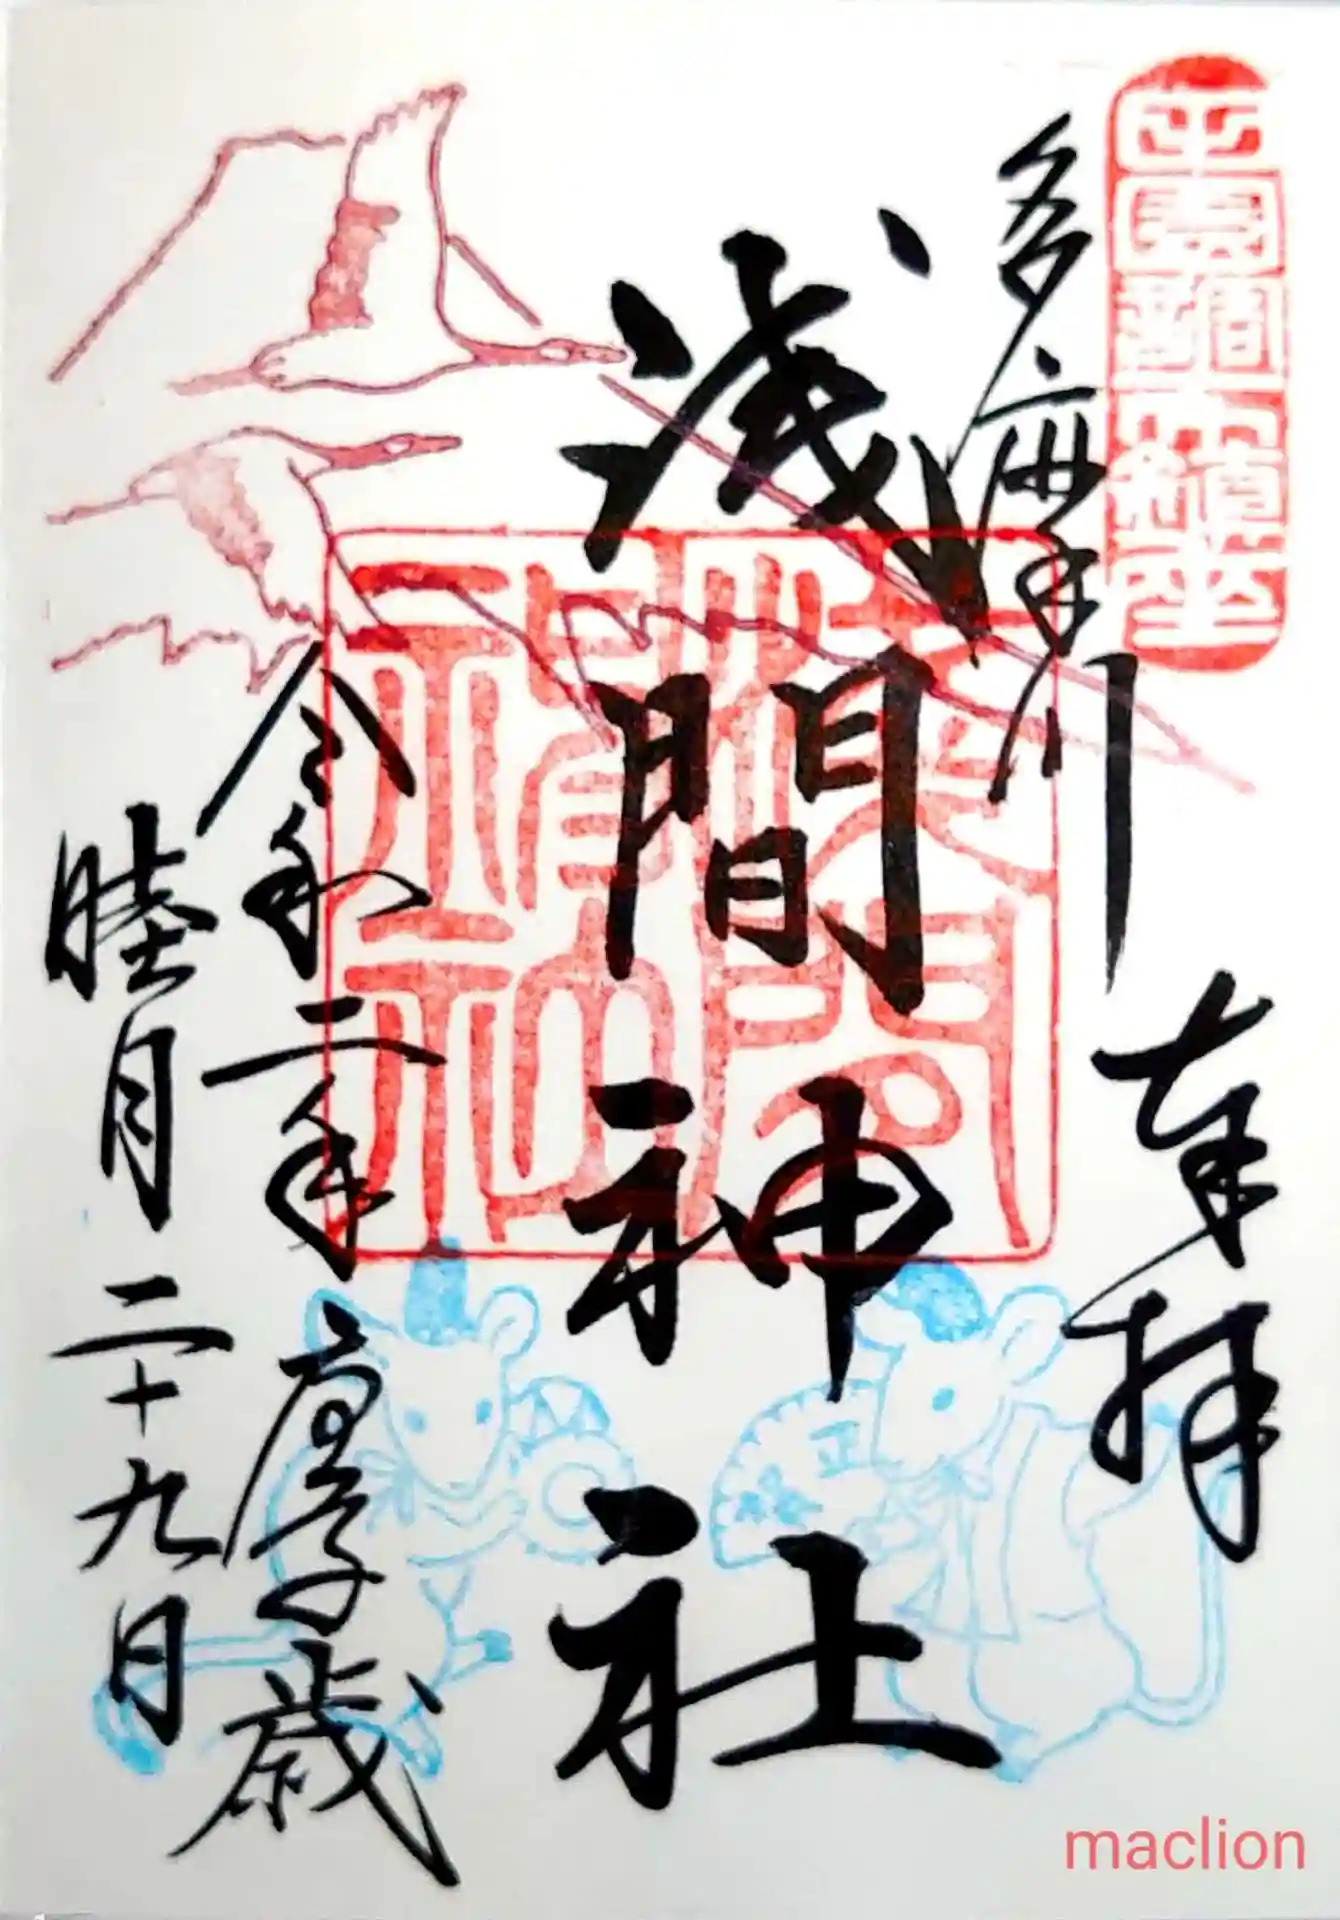 多摩川
奉拝
浅間神社
令和二年庚子歳
睦月二十九日
正
maclion